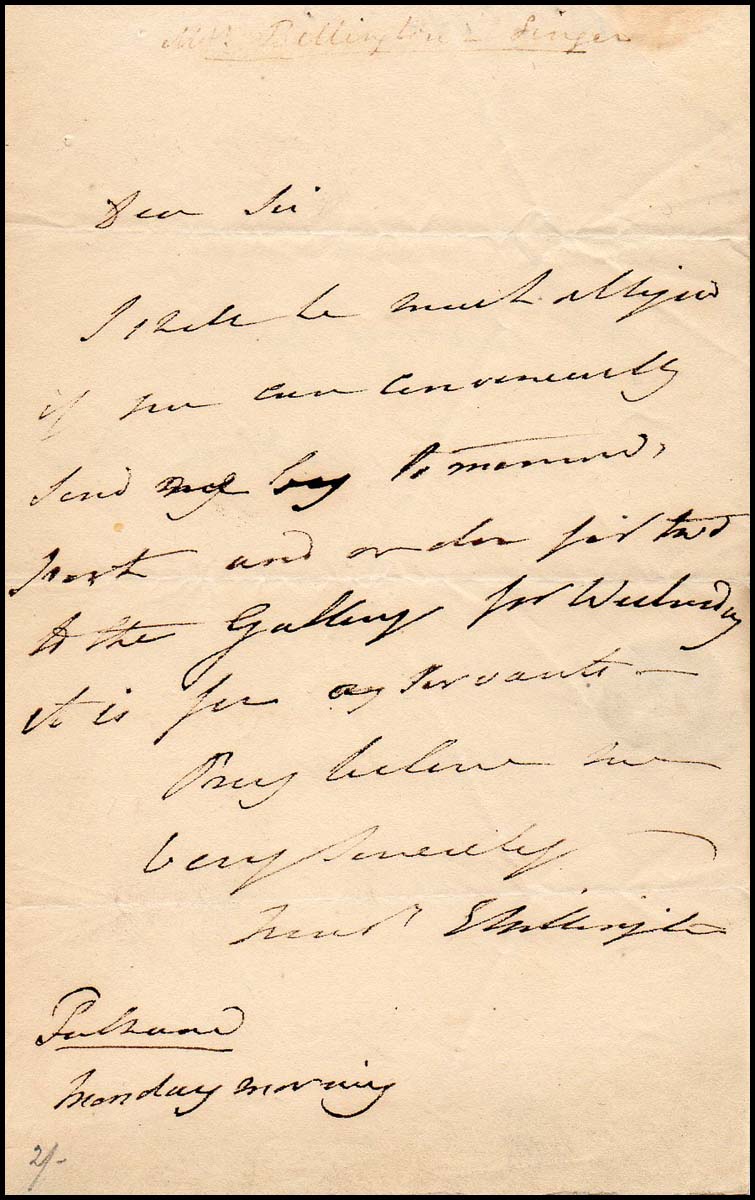 Mrs. Billington - Singer
Dear Sir
I shall be much obliged
if you can conveniently
send me by tomorrow's
post and order for two
to the Gallery for Wednesday
it is for my servants -
Pray believe me
very sincerely
yours EBillington
Fulham
Monday morning
2/-